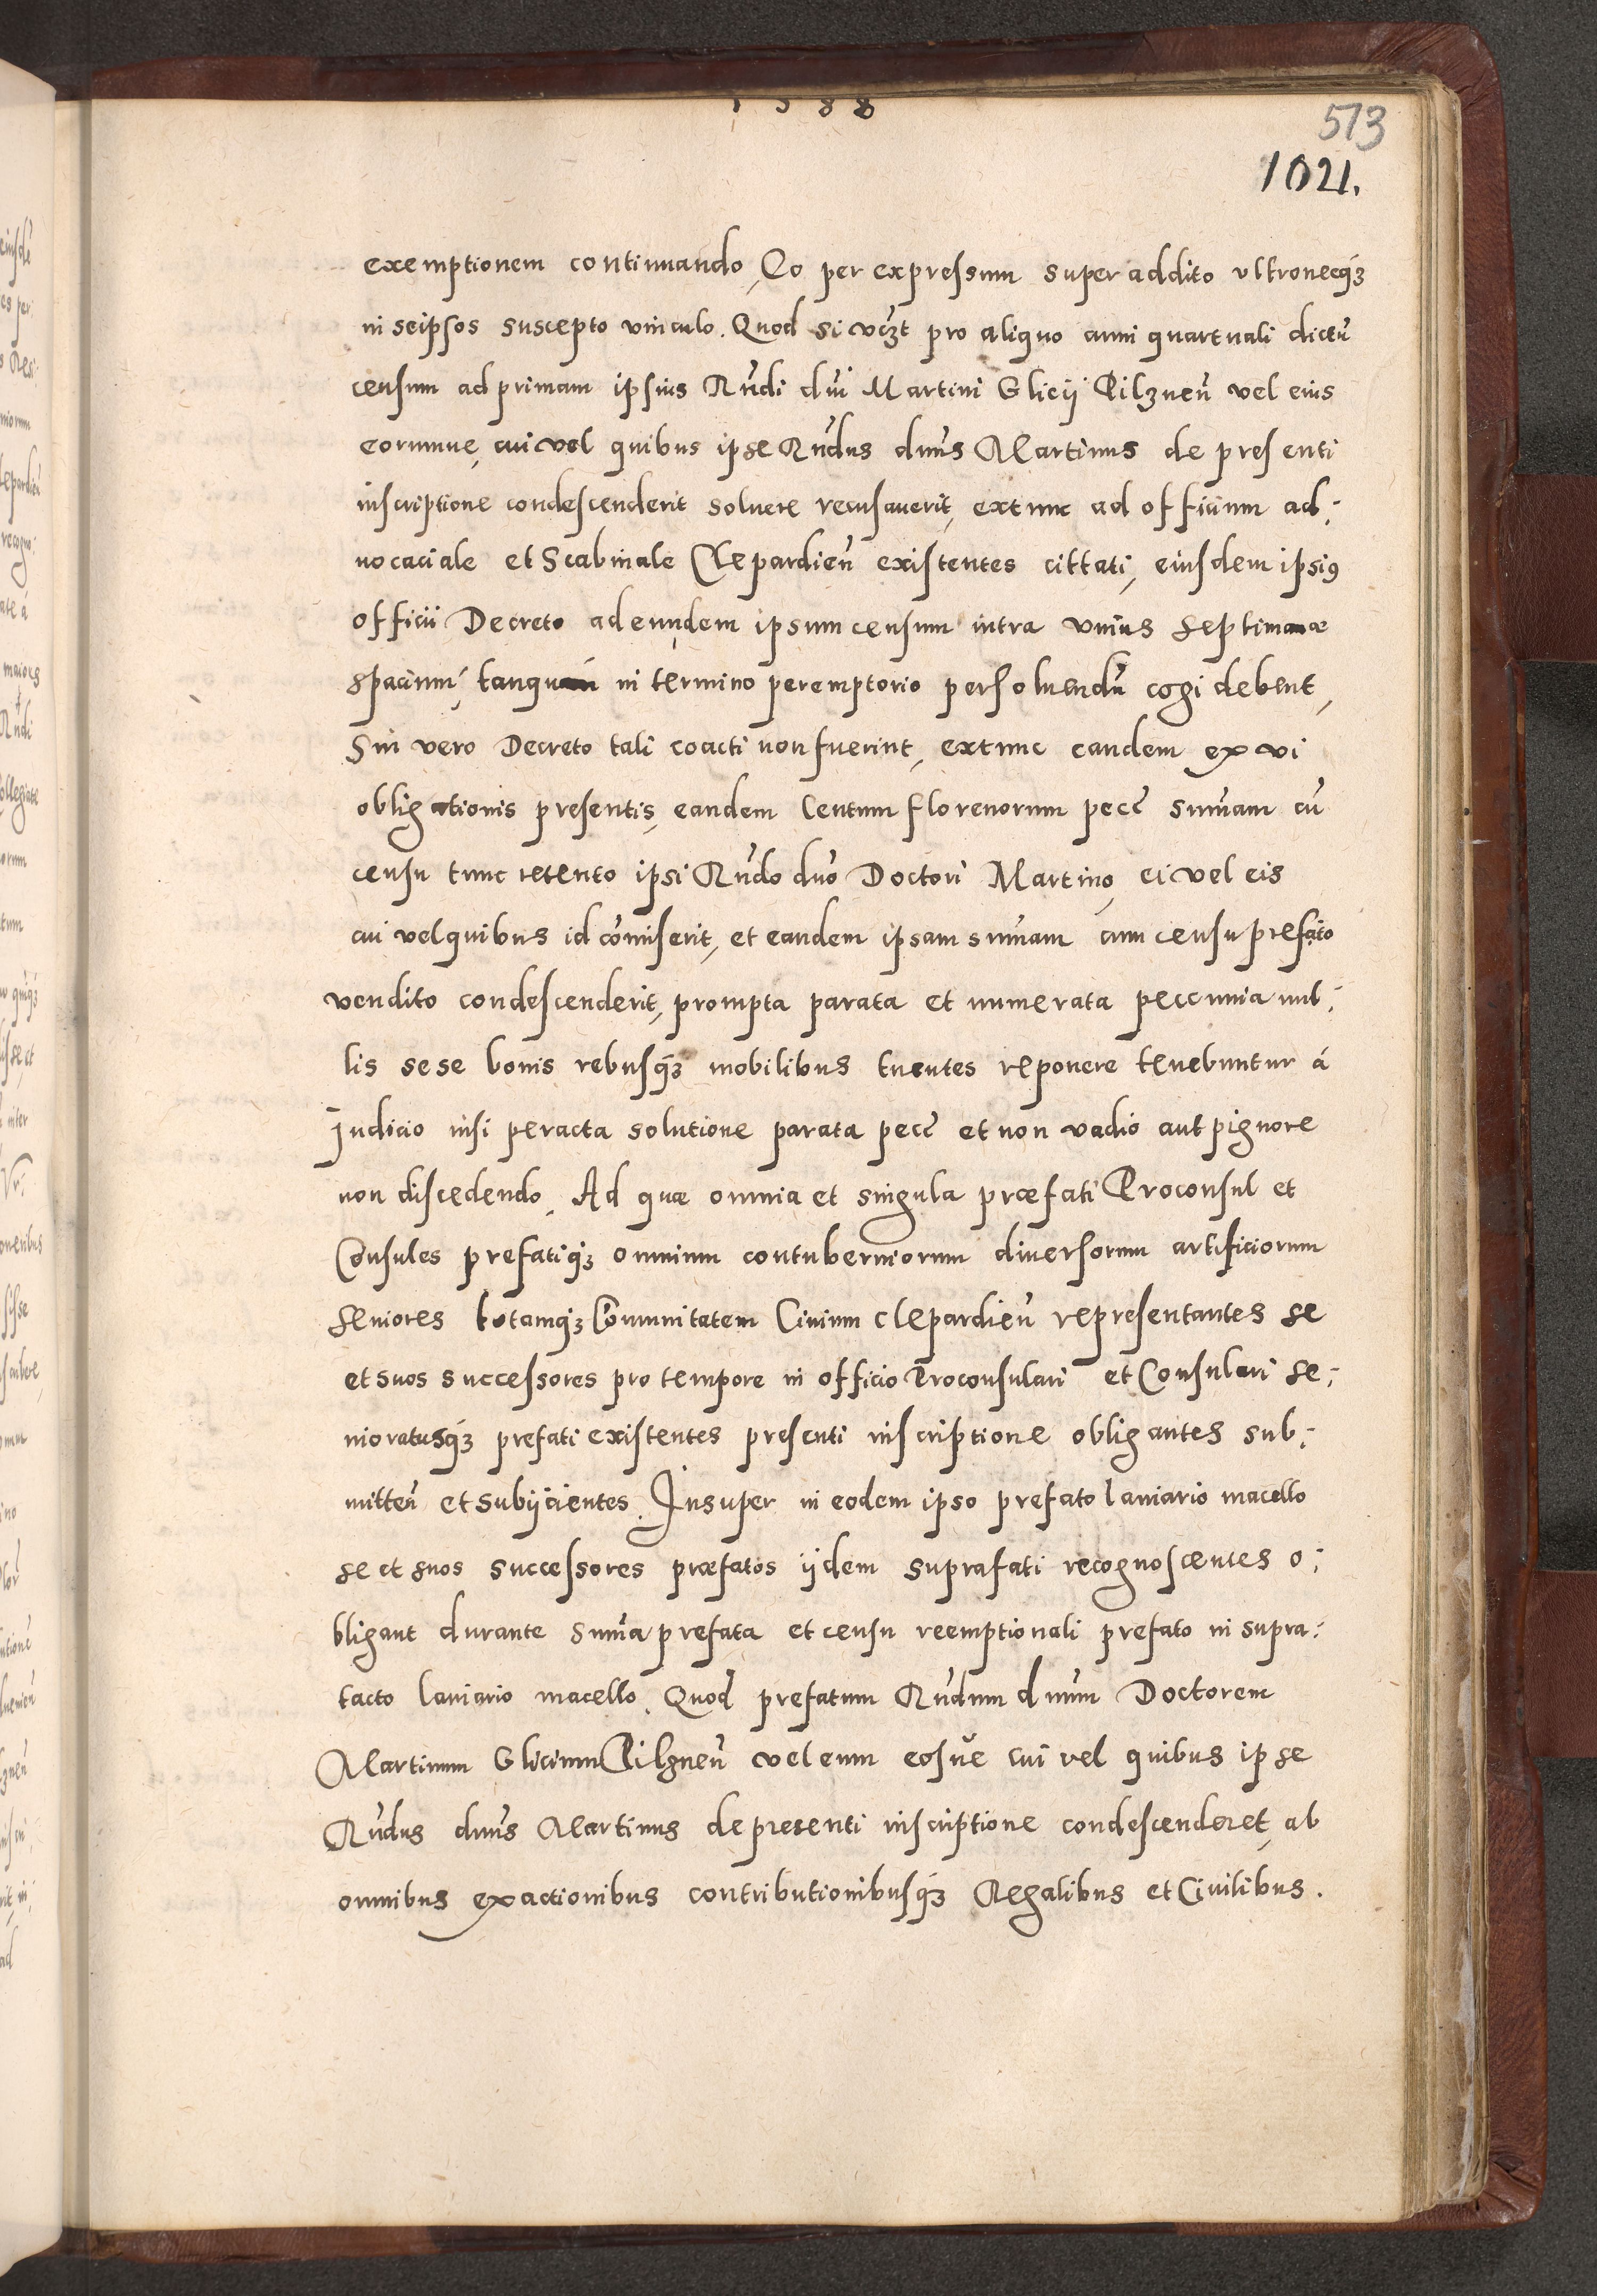 1588
513
1021.
exemptionem continuando, Eo per expressum super addito vltroneeq́ꝫ
in seipsos suscepto vinculo. Quod si vcꝫt pro aliquo anni quartuali dictū
censum ad primam ipsius Rñdi dñi Martini Glicij Pilznen̄ vel eius
eorumue, cui vel quibus ipse Rñdus dnñs Martinus de presenti
inscriptione condescenderit soluere recusauerit, extunc ad officium ad¬
uocaciale et Scabinale Clepardien̄ existentes cittati, eiusdem ipsiꝰ
officii Decreto ad eundem ipsum censum intra vnius septimanæ
spacium, tanquam in termino peremptorio persoluendū cogi debent,
Sin vero Decreto tali coacti non fuerint, extunc eandem ex vi
obligationis presentis, eandem Centum florenorum pecc̄ sum̄am cū
censu tunc retento ipsi Rñdo dño Doctori Martino, ei vel eis
cui vel quibus id com̄iserit, et eandem ipsam sum̄am cum censu prefato
vendito condescenderit, prompta parata et numerata peccunia nul¬
lis sese bonis rebusq́ꝫ mobilibus tuentes reponere tenebuntur á
Judicio nisi peracta solutione parata pecc̄ et non vadio aut pignore
non discedendo. Ad quæ omnia et singula præfati Proconsul et
Consules prefatiq́ꝫ omnium contuberniorum diuersorum artificiorum
seniores totamq́ꝫ Com̄unitatem Ciuium Clepardien̄ representantes se
et suos successores pro tempore in officio Proconsulari et Consulari se¬
nioratusq́ꝫ prefati existentes presenti inscriptione obligantes sub¬
mitten̄ et subijcientes. Insuper in eodem ipso prefato laniario macello
se et suos successores præfatos ijdem suprafati recognoscentes o¬
bligant durante sum̄a prefata et censu reemptionali prefato in supra¬
tacto laniario macello. Quod prefatum Rñdum dnum Doctorem
Martinum Glicium Pilznen̄ vel eum eosue cui vel quibus ipse
Rñdus dnñs Martinus de presenti inscriptione condescenderet, ab
omnibus exactionibus contributionibusq́ꝫ Regalibus et Ciuilibus.